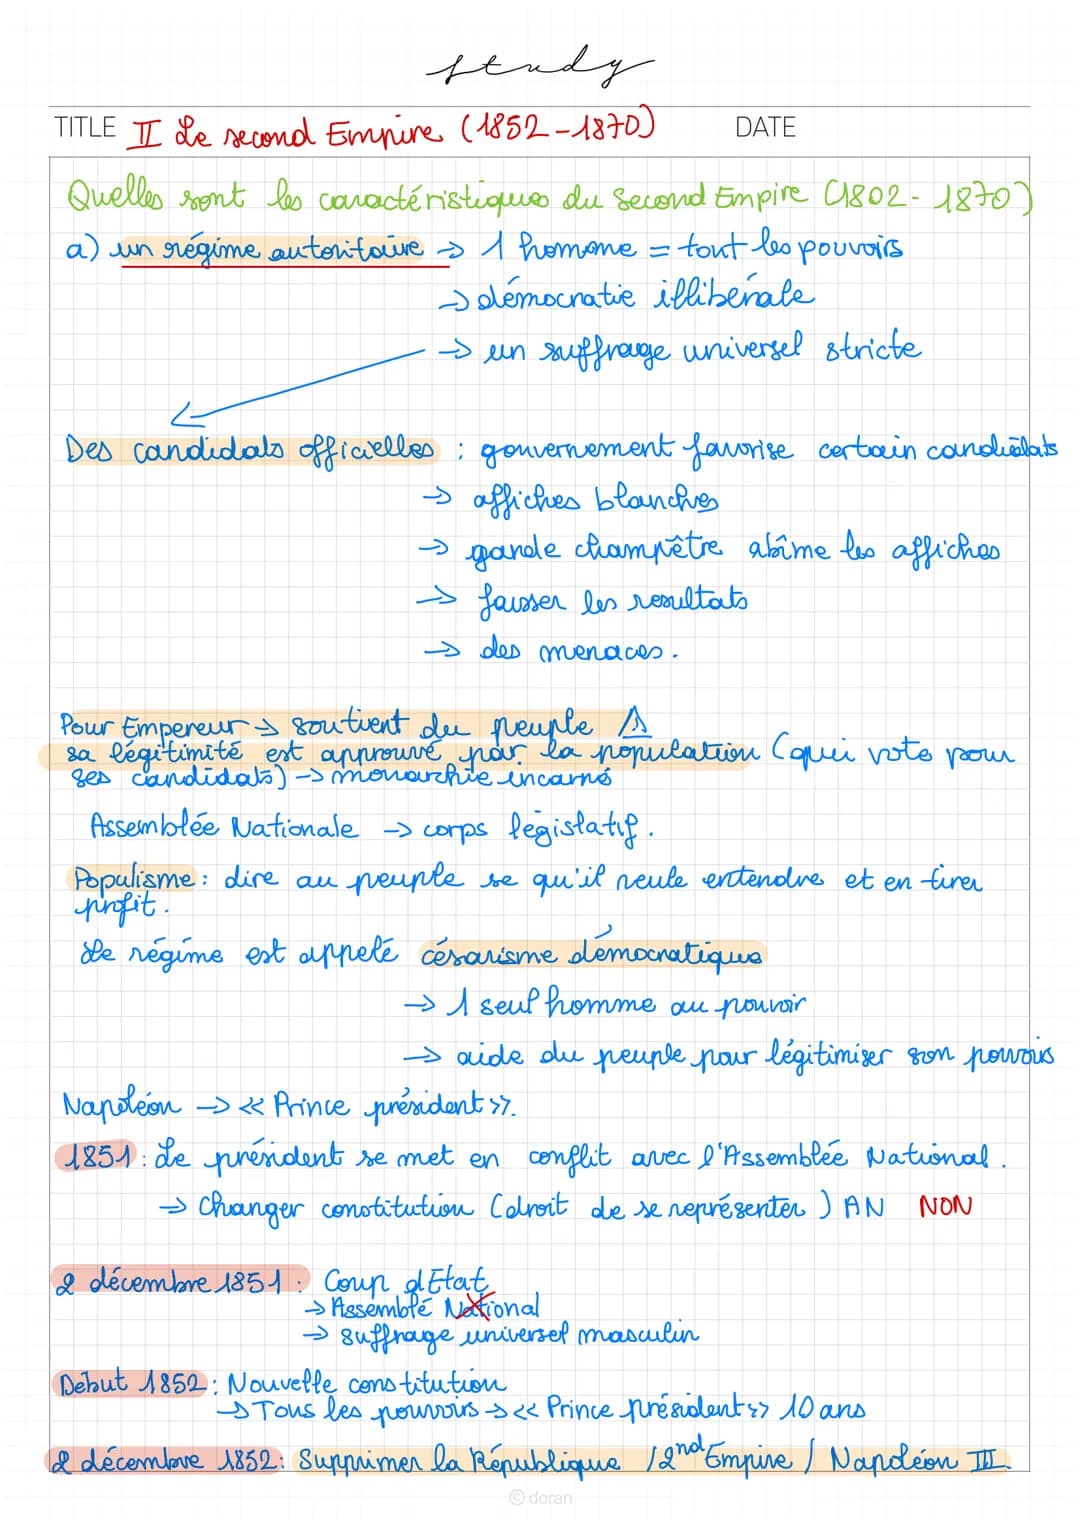 study
TITLE II Le second Empire (1852-1870) DATE
Quelles sont les caractéristiques du Second Empire (1802-1870)
a) un régime autoritaire → 1 homme = tout les pouvoirs
→ démocratie illibérale
→ un suffrage universel stricte
Des candidats officielles : gouvernement favorise certain candidats
→ affiches blanches
→ garde champêtre abîme les affiches
→ fausser les resultats
→ des menaces.
Pour Empereur → soutient du peuple ⚠
sa légitimité est approuvé par la population (qui vote pour
ses candidats) → monarchie incarné
Assemblée Nationale → corps législatif.
Populisme : dire au peuple se qu'il veule entendre et en tirer
profit.
Le régime est appelé césarisme démocratique
→ 1 seul homme au pouvoir
→ aide du peuple pour légitimiser son pouvoirs
Napoléon → << Prince président >>.
1851 : Le président se met en conflit avec l'Assemblée National.
→ Changer constitution (droit de se représenter) AN NON
2 décembre 1851 : Coup d'Etat
→ Assemblé National
→ suffrage universel masculin
Début 1852 : Nouvelle constitution
→ Tous les pouvoirs → << Prince président >> 10 ans
2 décembre 1852 : Supprimer la République / 2nd Empire / Napoléon III.
© doran